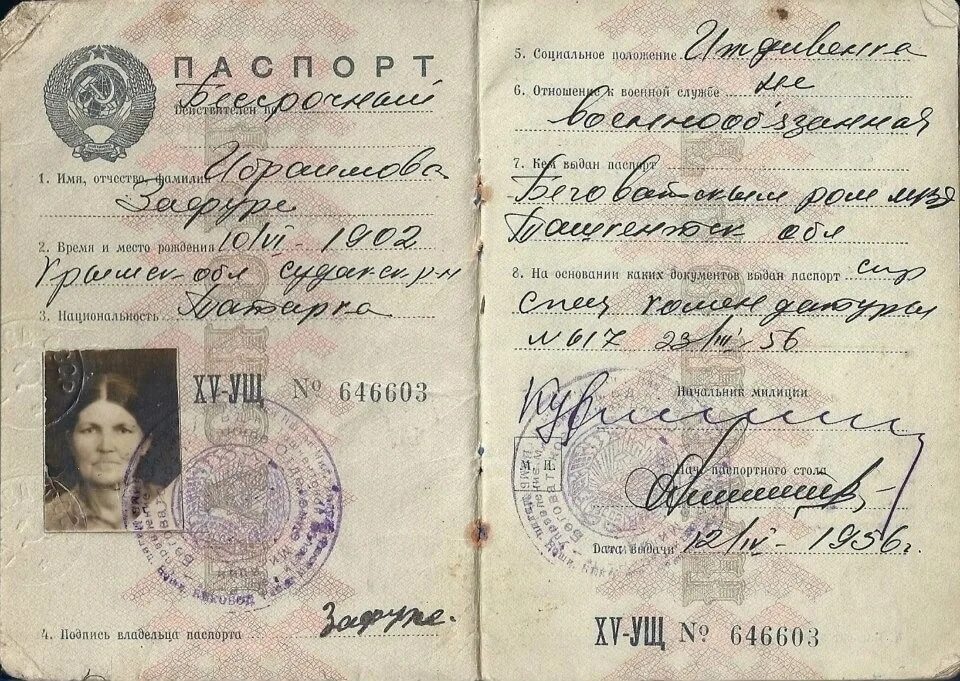 ПАСПОРТ
Бессрочный
Действителен по
1. Имя, отчество, фамилия Ибраимова
Зафуре
2. Время и место рождения 10/VI - 1902
Крымск обл Судакск р-н
3. Национальность Татарка
XV-УЩ № 646603
4. Подпись владельца паспорта Зафуре.
5. Социальное положение Иждивенка
6. Отношение к военной службе не
военнообязанная
7. Кем выдан паспорт
Беговатским ром мвд
Ташкентск обл
8. На основании каких документов выдан паспорт спр
спец комендатуры
№ 617 23/III-56
Начальник милиции
М. П.
Нач. паспортного стола
Дата выдачи 12/IV - 1956г.
XV-УЩ № 646603